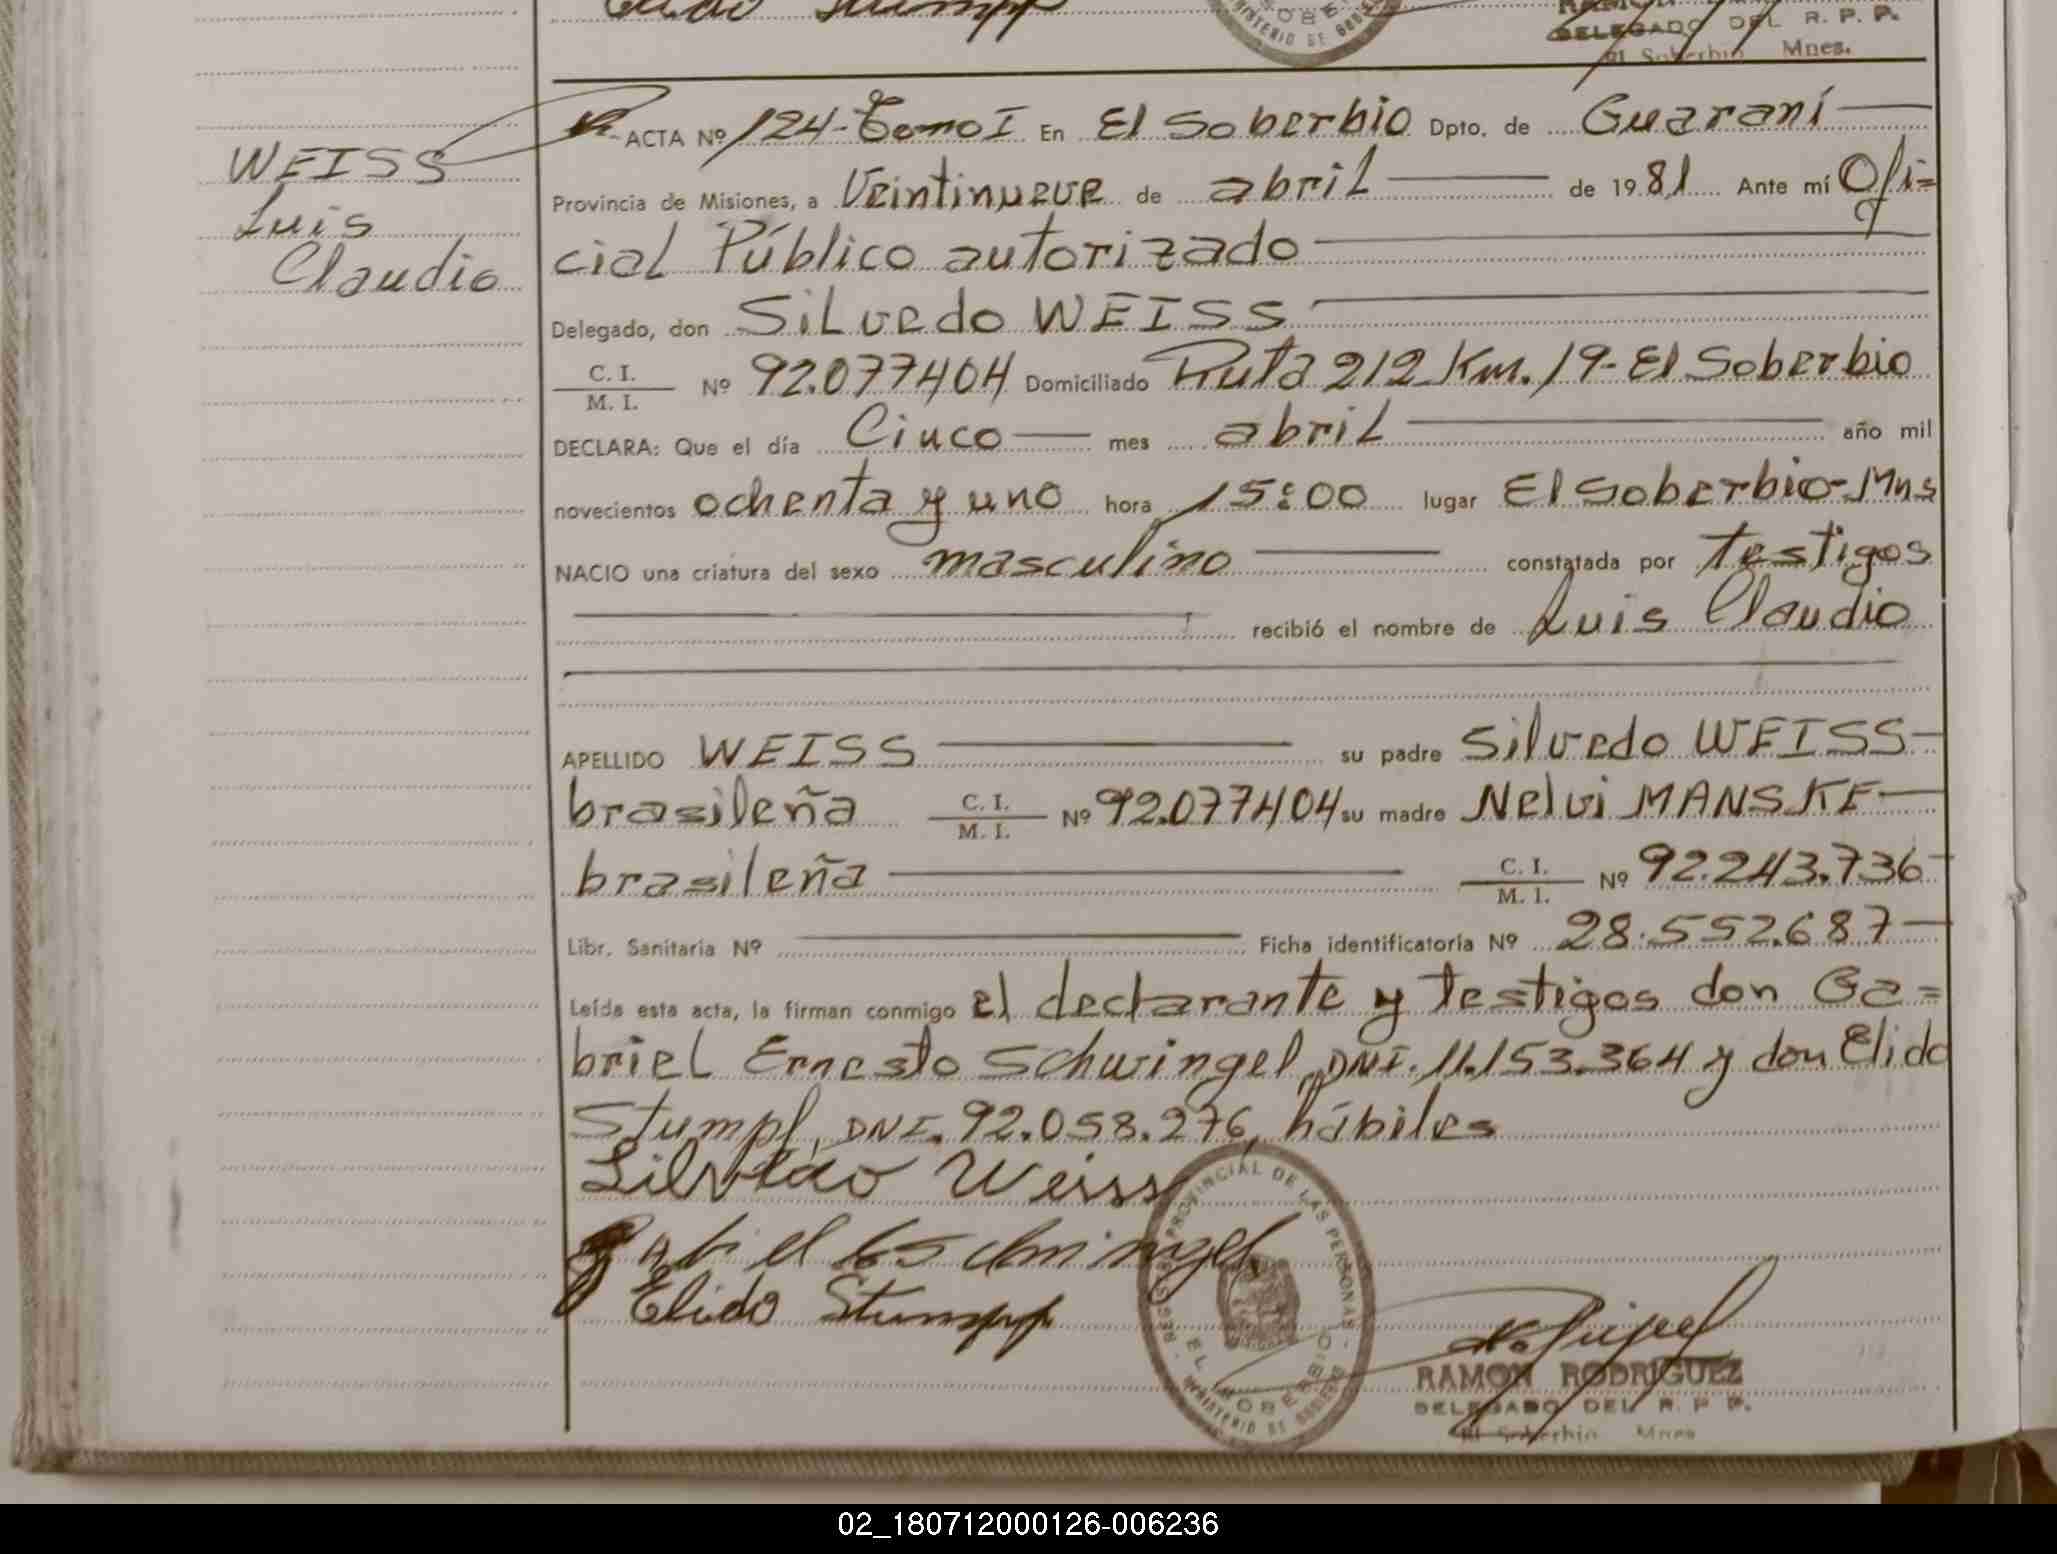 Elido Stumpf
SOBE
MINISTERIO DE GOB
DELEGADO DEL R. P. P.
El Soberbio Mnes.
WEISS
Luis
Claudio
ACTA Nº 124-Tomo I En El Soberbio Dpto. de Guaraní
Provincia de Misiones, a Veintinueve de abril de 1981 Ante mí Ofi=
cial Público autorizado
Delegado, don Silvedo WEISS
C. I.
M. I. Nº 92.077404 Domiciliado Ruta 212 Km. 19-El Soberbio
DECLARA: Que el día Cinco mes abril año mil
novecientos ochenta y uno hora 15:00 lugar El Soberbio-Mns
NACIO una criatura del sexo masculino constatada por testigos
recibió el nombre de Luis Claudio
APELLIDO WEISS su padre Silvedo WEISS
brasileña C. I.
M. I. Nº 92.077404 su madre Nelvi MANSKE
brasileña C. I.
M. I. Nº 92.243.736
Libr. Sanitaria Nº Ficha identificatoria Nº 28.552.687
Leída esta acta, la firman conmigo el declarante y testigos don Ga=
briel Ernesto Schwingel, DNI. 11.153.364 y don Elido
Stumpf, DNI. 92.058.276, hábiles
Silvedo Weiss
Elido Stumpf
REGISTRO PROVINCIAL DE LAS PERSONAS
EL SOBERBIO
MINISTERIO DE GOBIERNO
RAMON RODRIGUEZ
DELEGADO DEL R. P. P.
El Soberbio Mnes
02_180712000126-006236